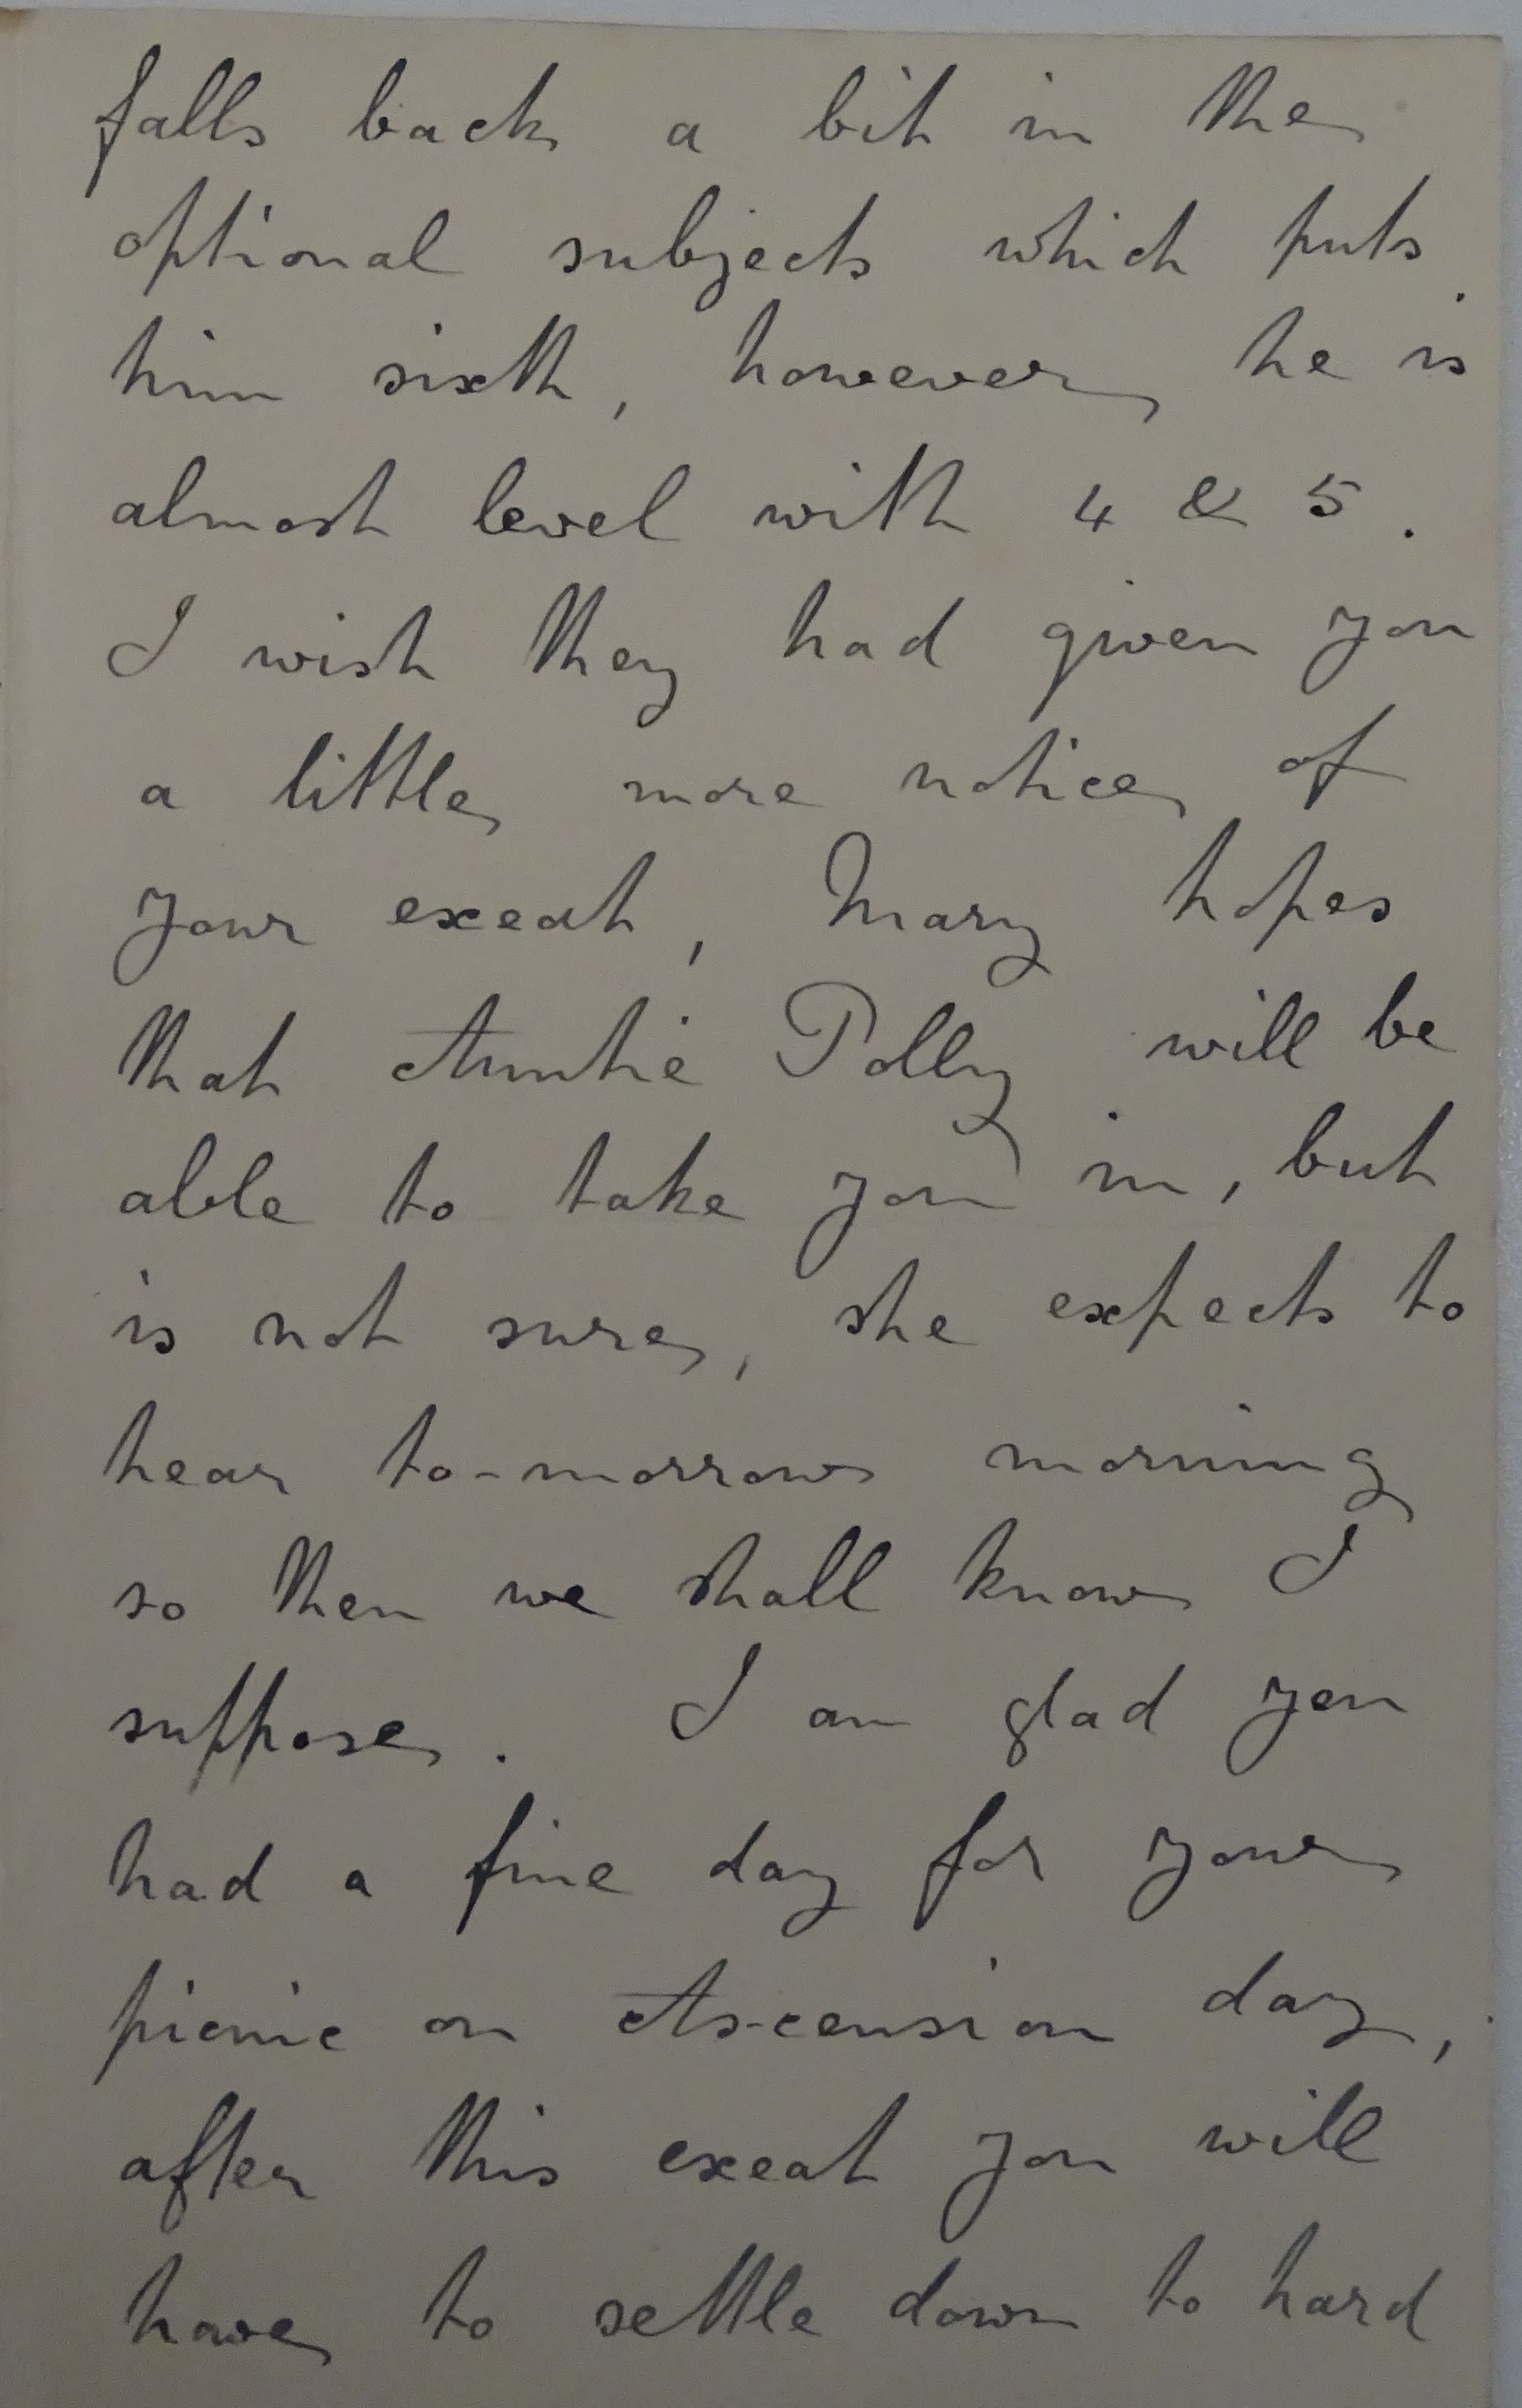 falls back a bit in the
optional subjects which puts
him sixth, however he is
almost level with 4 & 5.
I wish they had given you
a little more notice of
your exeat, Mary hopes
that Auntie Polly will be
able to take you in, but
is not sure, she expects to
hear to-morrow morning
so then we shall know I
suppose. I am glad you
had a fine day for your
picnic on Ascension day,
after this exeat you will
have to settle down to hard